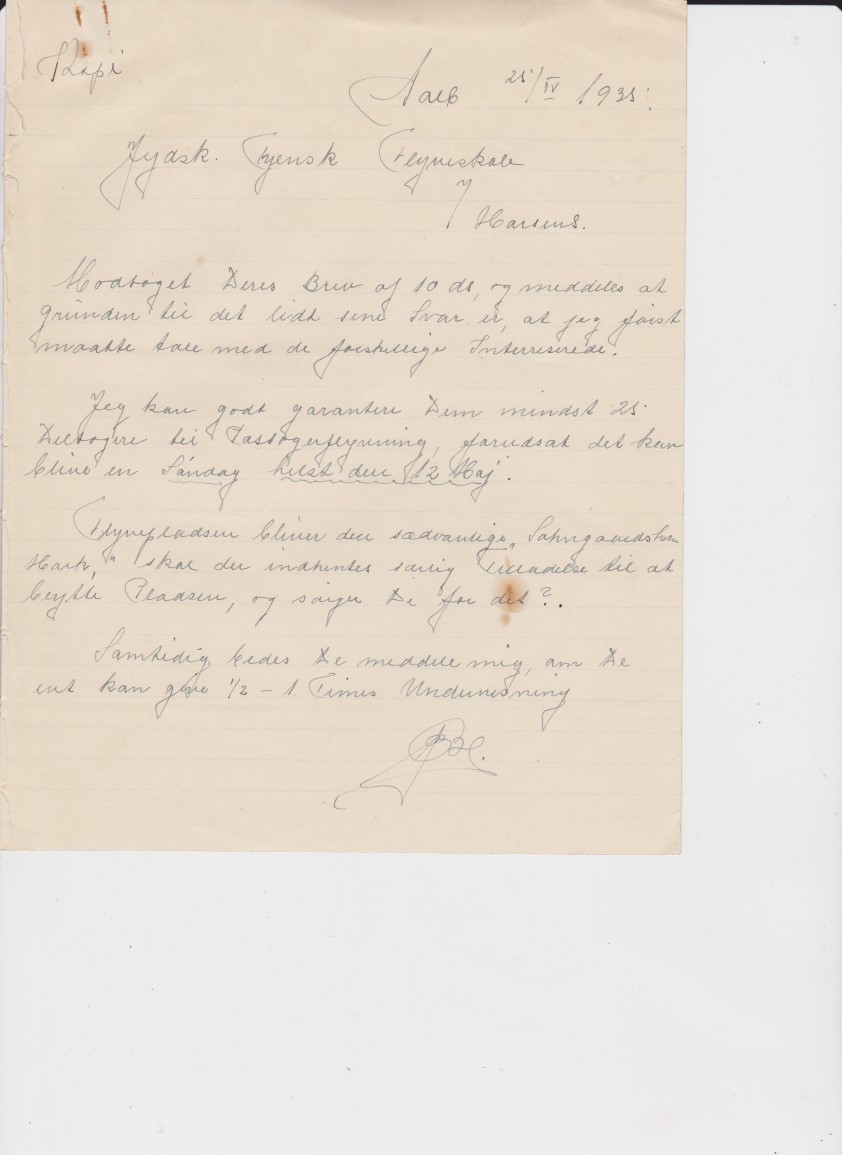 Kopi
Aalb 25/IV 1935.
Jydsk. Fyensk Flyveskole
Horsens.
Modtoget Deres Brev af 10 ds, og meddeles at
grunden til det lidt sene Svar er, at jeg først
maatte tale med de forskellige Interreserede.
Jeg kan godt garantere Dem mindst 25
Deltagere til Passagerflyvning, forudsat det kan
blive en Søndag helst den 12 Maj.
Flyvepladsen bliver den sædvanlige,
Mark," skal der indhentes særlig Tilladelse til at
benytte Pladsen, og sørger De for det?.
Samtidig bedes De meddele mig, om De
ent kan give 1/2 - 1 Times Undervisning